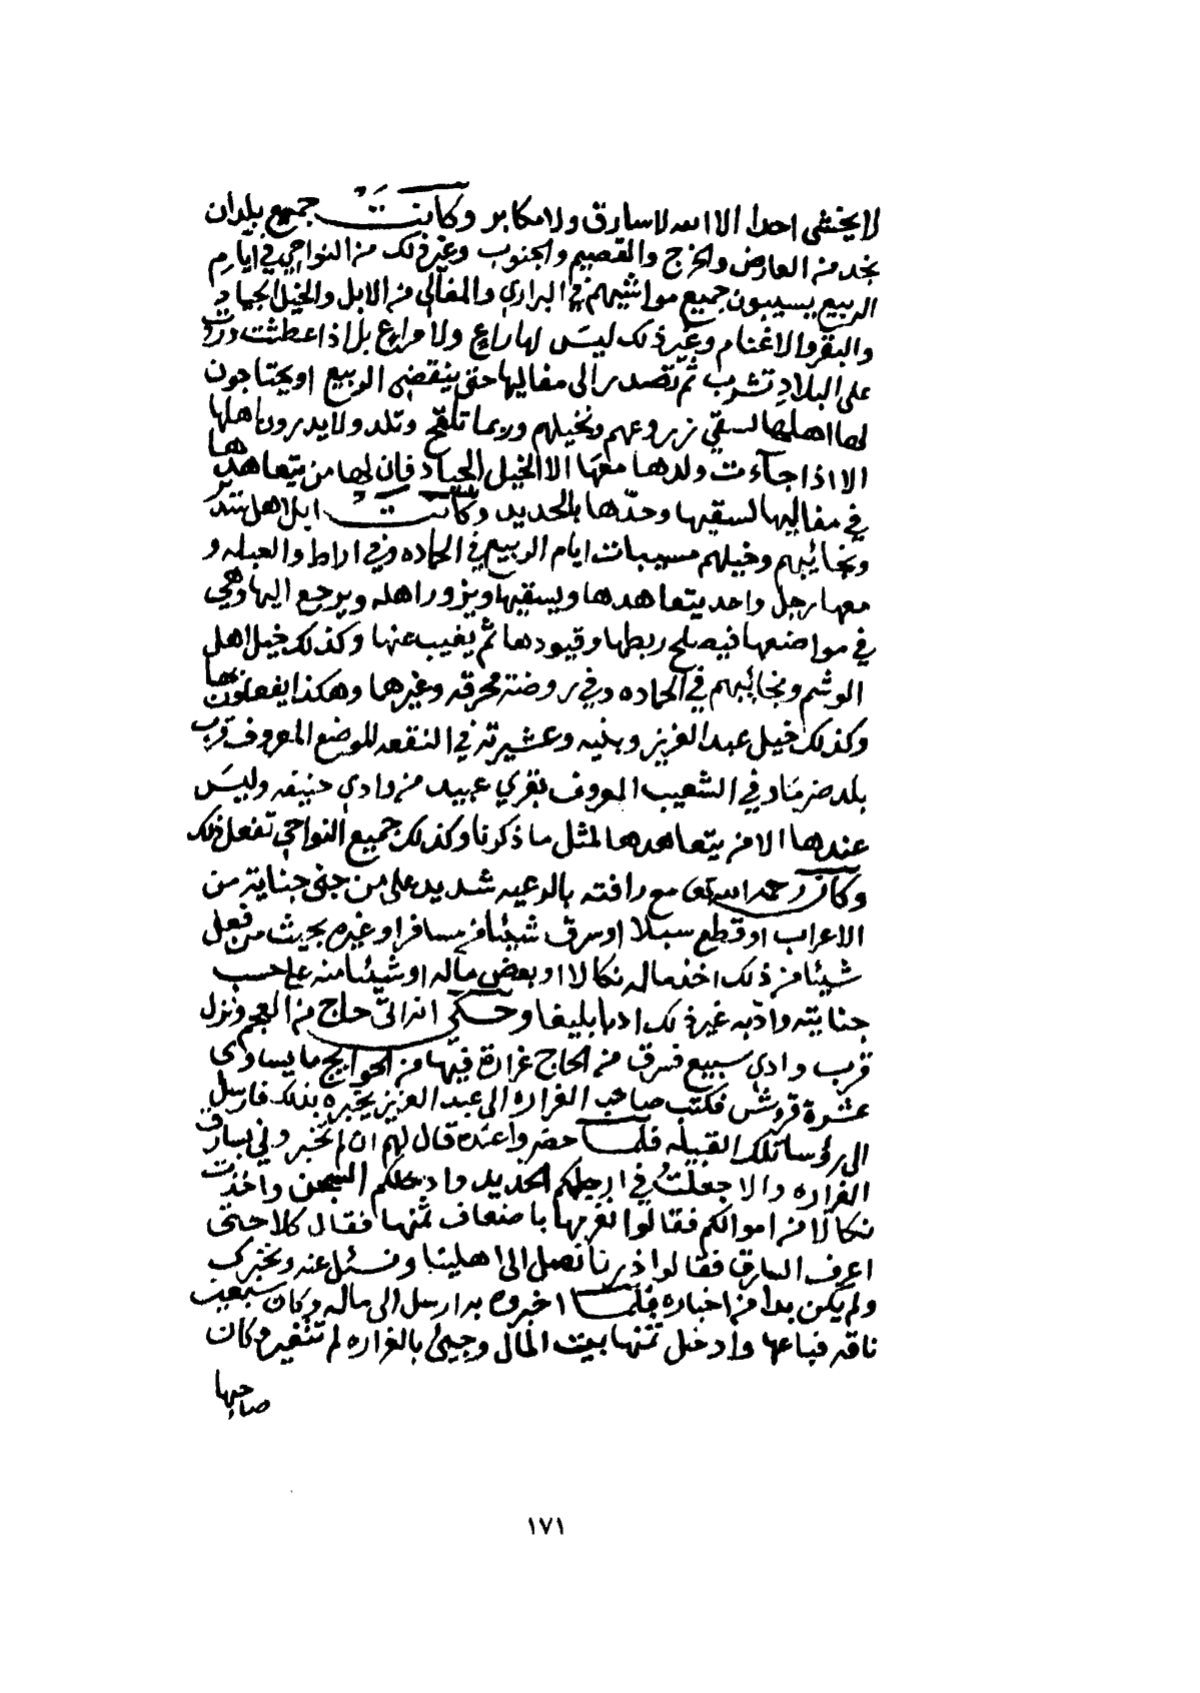 لا يخشى احدا الا الله لا سارق ولا مكابر وكانت جميع بلدان
نجد من العارض والخرج والقصيم والجنوب وغير ذلك من النواحي في ايام
الربيع يسيبون جميع مواشيهم في البراري والمفالي من الابل والخيل الجياد
والبقر والاغنام وغير ذلك ليس لها راع ولا مراع بل اذا عطشت وردت
على البلاد تشرب ثم تصدر الى مفاليها حتى ينقضي الربيع او يحتاجون
لها اهلها لسقي زروعهم ونخيلهم وربما تلقح وتلد ولا يدرون اهلها
الا اذا جآءت ولدها معها الا الخيل الجياد فان لها من يتعاهدها
في مفاليها لسقيها وحدّها بالحديد وكانت ابل اهل سدير
ونجائبهم وخيلهم مسيبات ايام الربيع في الحماده وفي اراط والعبله و
معها رجل واحد يتعاهدها ويسقيها ويزور اهله ويرجع اليها وهي
في مواضعها فيصلح ربطها وقيودها ثم يغيب عنها وكذلك خيل اهل
الوشم ونجائبهم في الحماده وفي روضة محرقه وغيرها وهكذا يفعلون بها
وكذلك خيل عبد العزيز وبنيه وعشيرته في النقعه الموضع المعروف قرب
بلد ضرما وفي الشعيب المعروف بقري عبيد من وادي حنيفه وليس
عندها الا من يتعاهدها لمثل ما ذكرنا وكذلك جميع النواحي تفعل ذلك
وكان رحمه الله تعالى مع رافته بالرعيه شديد على من جنى جناية من
الاعراب او قطع سبلا او سرق شيئا من مسافر او غيره بحيث من فعل
شيئا من ذلك اخذ ماله نكالا او بعض ماله او شيئا منه على حسب
جنايته وادبه غير ذلك ادبا بليغا وحكي انه اتى حاج من العجم ونزل
قرب وادي سبيع فسرق من الحاج غرارة فيها من الحوايج ما يساوى
عشرة قروش فكتب صاحب الغراره الى عبد العزيز يخبره بذلك فارسل
الى رؤسا تلك القبيله فلما حضروا عنده قال لهم ان لم تخبروني بسارق
الغراره والا جعلت في ارجلكم الحديد وادخلكم السجن واخذت
نكالا من اموالكم فقالوا نغرمها باضعاف ثمنها فقال كلا حتى
اعرف السارق فقالوا ذرنا نصل الى اهلينا ونسئل عنه ونخبرك
ولم يكن بدا من اخباره فلما اخبروه به ارسل الى ماله وكان سبعين
ناقه فباعها وادخل ثمنها بيت المال وجيئ بالغراره لم تتغير وكان
صاحبها
١٧١